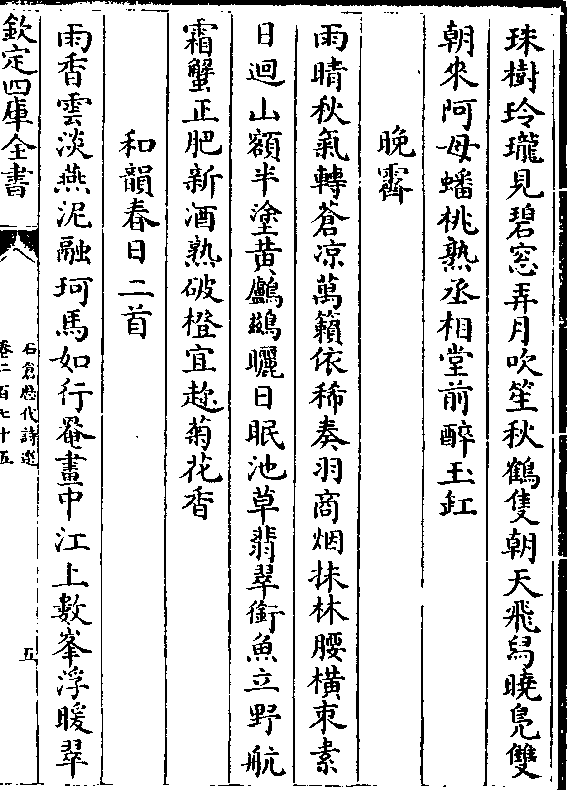 珠樹玲瓏見碧窓弄月吹笙秋鶴隻朝天飛舄曉鳬雙
朝來阿母蟠桃熟丞相堂前醉玉缸
晚霽
雨晴秋氣轉蒼凉萬籟依稀奏羽商烟抹林腰橫束素
日迴山額半塗黃鸕鷀曬日眠池草翡翠銜魚立野航
霜蟹正肥新酒熟破橙宜趂菊花香
和韻春日二首
雨香雲淡燕泥融珂馬如行罨畫中江上數峯浮暖翠
欽定四庫全書
石倉歷代詩選
卷二百七十五
五